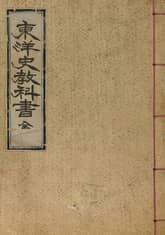 東洋史教科書 全